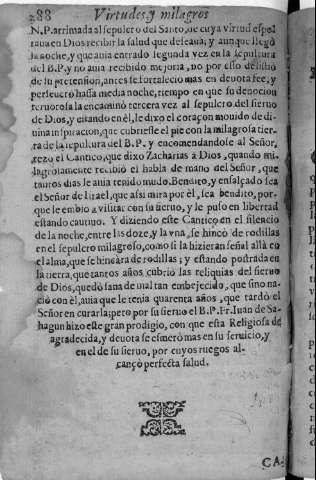 288 Virtudes, y milagros
N.P. arrimada al sepulcro del Santo, de cuya virtud espe
raua en Dios recibir la salud que deseaua; y aunque llegó
la noche, y que auia entrado segunda vez en la sepultura
del B.P. y no auia recibido mejora, no por esso desistió
de su pretension, antes se fortaleció mas en deuota fee, y
perseueró hasta media noche, tiempo en que su deuocion
feruorosa la encaminó tercera vez al sepulcro del sieruo
de Dios, y estando en él, le dixo el coraçon mouido de di-
uina inspiracion, que cubriesse el pie con la milagrosa tier-
ra de la sepultura del B.P. y encomendandole al Señor,
rezò el Cantico, que dixo Zacharias à Dios, quando mi-
lagrosamente recibió el habla de mano del Señor, que
tantos dias le auia tenido mudo. Bendito, y ensalçado sea
el Señor de Israel, que assi mira por él, sea bendito, por-
que le embió a visitar con su sieruo, y le puso en libertad
estando cautiuo. Y diziendo este Cantico en el silencio
de la noche, entre las doze, y la vna, se hincó de rodillas
en el sepulcro milagroso, como si la hizieran señal allà en
el alma, que se hincara de rodillas; y estando postrada en
la tierra, que tantos años cubrió las reliquias del sieruo
de Dios, quedó sana de mal tan embejecido, que sino na-
ció con èl, auia que le tenia quarenta años, que tardó el
Señor en curarla; pero por su sieruo el B.P.Fr. Iuan de Sa-
hagun hizo este gran prodigio, con que esta Religiosa de
agradecida, y deuota se esmerò mas en su seruicio, y
en el de su sieruo, por cuyos ruegos al-
cançò perfecta salud.
CA-